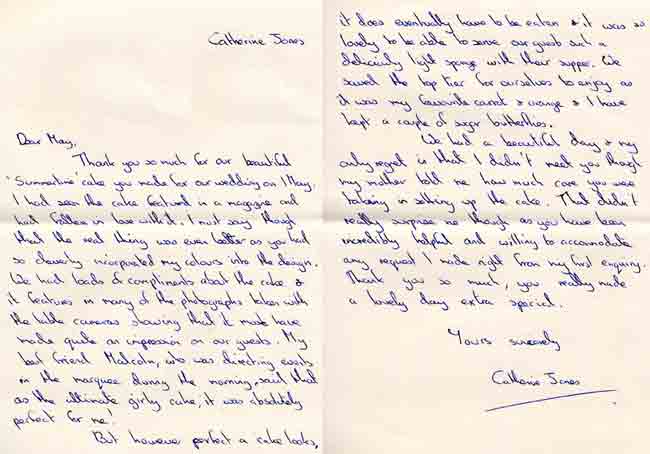 Catherine Jones
Dear May,
Thank you so much for our beautiful
'Summertime' cake you made for our wedding on 1 May.
I had seen the cake featured in a magazine and
had fallen in love with it. I must say though
that the real thing was even better as you had
so cleverly incorporated my colours into the design.
We had loads of compliments about the cake &
it features in many of the photographs taken with
the table cameras showing that it must have
made quite an impression on our guests. My
best friend Malcolm, who was directing events
in the marquee during the morning, said that
as the ultimate girly cake, it was absolutely
perfect for me!
But however perfect a cake looks,
it does eventually have to be eaten & it was so
lovely to be able to serve our guests such a
deliciously light sponge with their supper. We
saved the top tier for ourselves to enjoy as
it was my favourite carrot & orange & I have
kept a couple of sugar butterflies.
We had a beautiful day & my
only regret is that I didn't meet you though
my mother told me how much care you were
taking in setting up the cake. That didn't
really surprise me though as you have been
incredibly helpful and willing to accomodate
any request I made right from my first enquiry.
Thank you so much, you really made
a lovely day extra special.
Yours sincerely
Catherine Jones